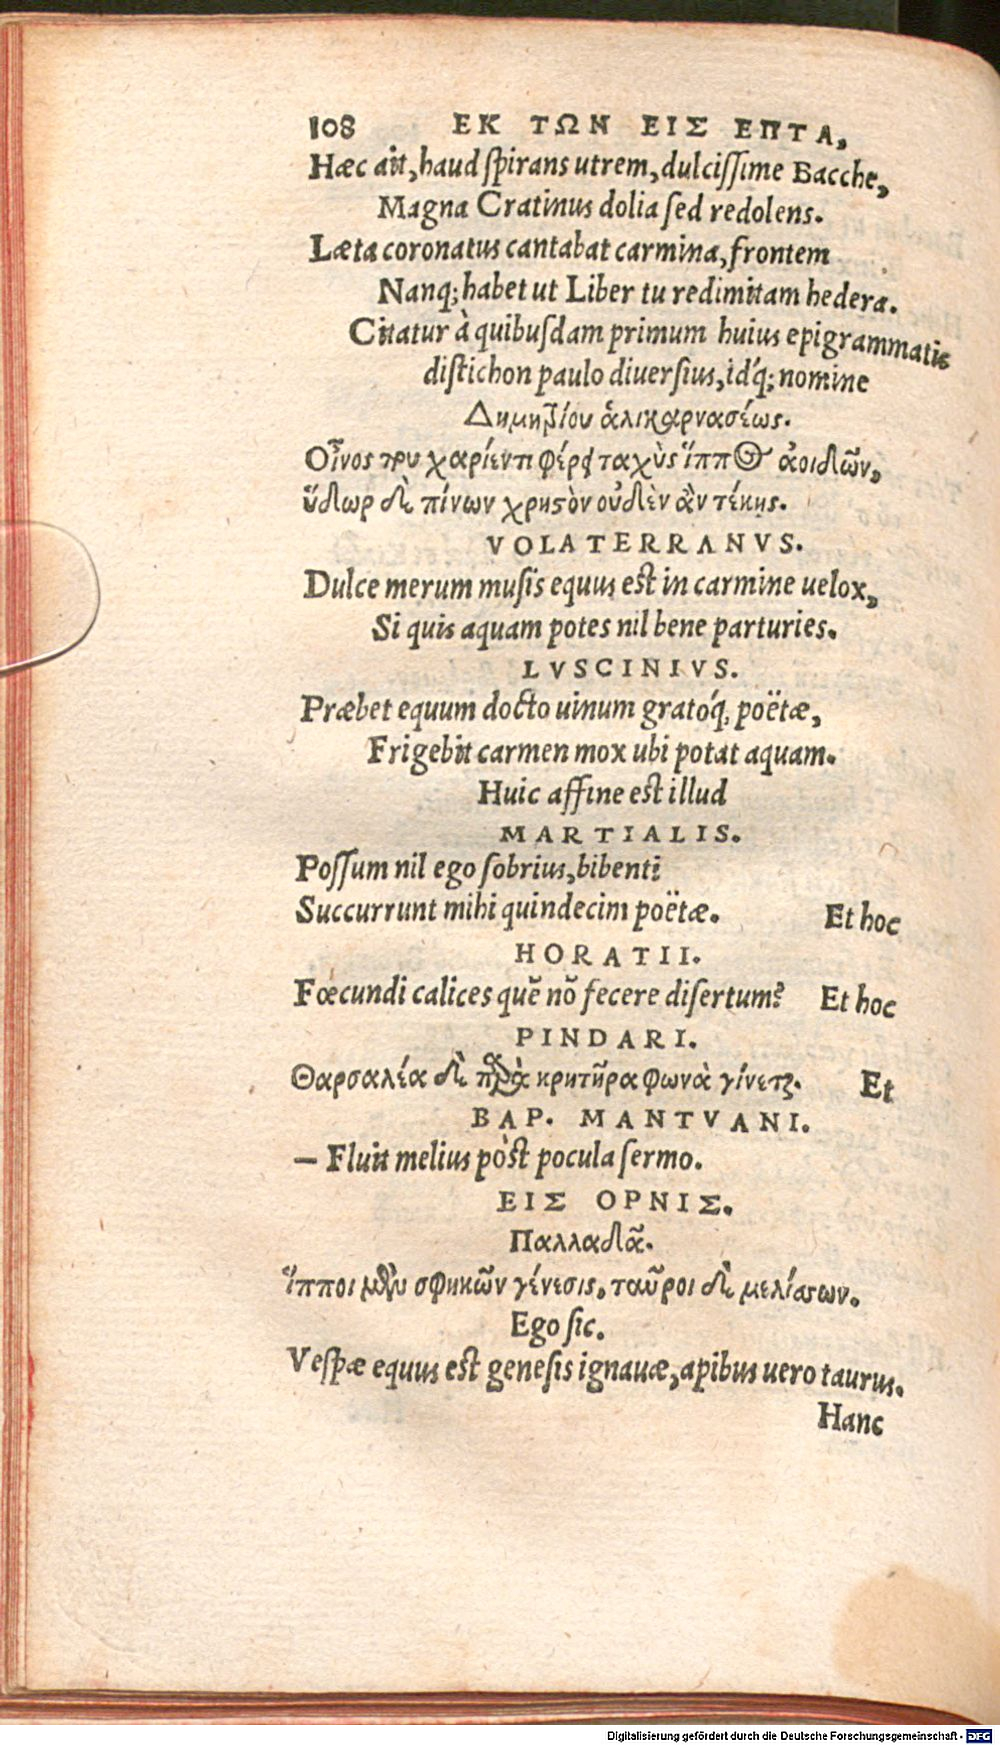 108 ΕΚ ΤΩΝ ΕΙΣ ΕΠΤΑ,
Hæc ait, haud spirans utrem, dulcissime Bacche,
Magna Cratinus dolia sed redolens.
Læta coronatus cantabat carmina, frontem
Nanq; habet ut Liber tu redimitam hedera.
Citatur à quibusdam primum huius epigrammatis
distichon paulo diuersius, idq́; nomine
Δημητρίου ἁλικαρνασέως.
Οἶνος τοι χαρίεντι φέρει ταχὺς ἵππος ἀοιδῶν,
ὕδωρ δὲ πίνων χρηστὸν οὐδὲν ἂν τέκῃς.
VOLATERRANVS.
Dulce merum musis equus est in carmine uelox,
Si quis aquam potes nil bene parturies.
LVSCINIVS.
Præbet equum docto uinum gratoq́; poëtæ,
Frigebit carmen mox ubi potat aquam.
Huic affine est illud
MARTIALIS.
Possum nil ego sobrius, bibenti
Succurrunt mihi quindecim poëtæ. Et hoc
HORATII.
Fœcundi calices quẽ nõ fecere disertum? Et hoc
PINDARI.
Θαρσαλέα δὲ παρὰ κρητῆρα φωνὰ γίνεται. Et
BAP. MANTVANI.
— Fluit melius pòst pocula sermo.
ΕΙΣ ΟΡΝΙΣ.
Παλλαδᾶ.
ἵπποι μὲν σφηκῶν γένεσις, ταῦροι δὲ μελισσων.
Ego sic.
Vespæ equus est genesis ignauæ, apibus uero taurus.
Hanc
Digitalisierung gefördert durch die Deutsche Forschungsgemeinschaft - DFG